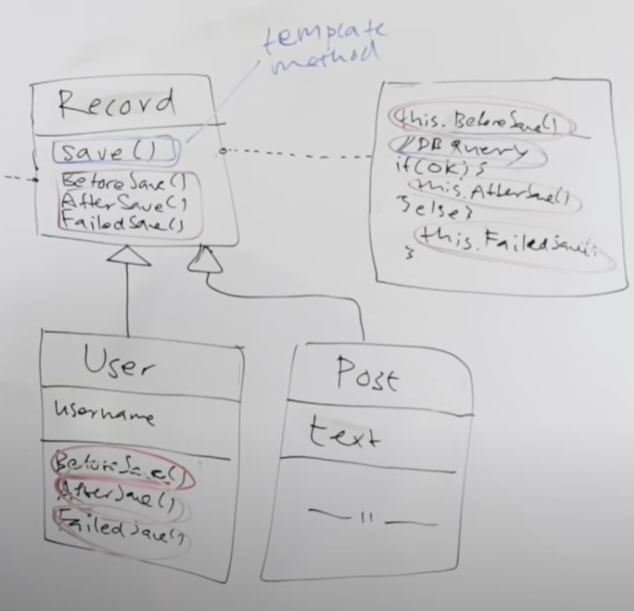 template
method
Record
save()
BeforeSave()
AfterSave()
FailedSave()
this.BeforeSave()
//DB query
if(ok){
this.AfterSave()
}else{
this.FailedSave();
}
User
username
BeforeSave()
AfterSave()
FailedSave()
Post
text
— 11 —